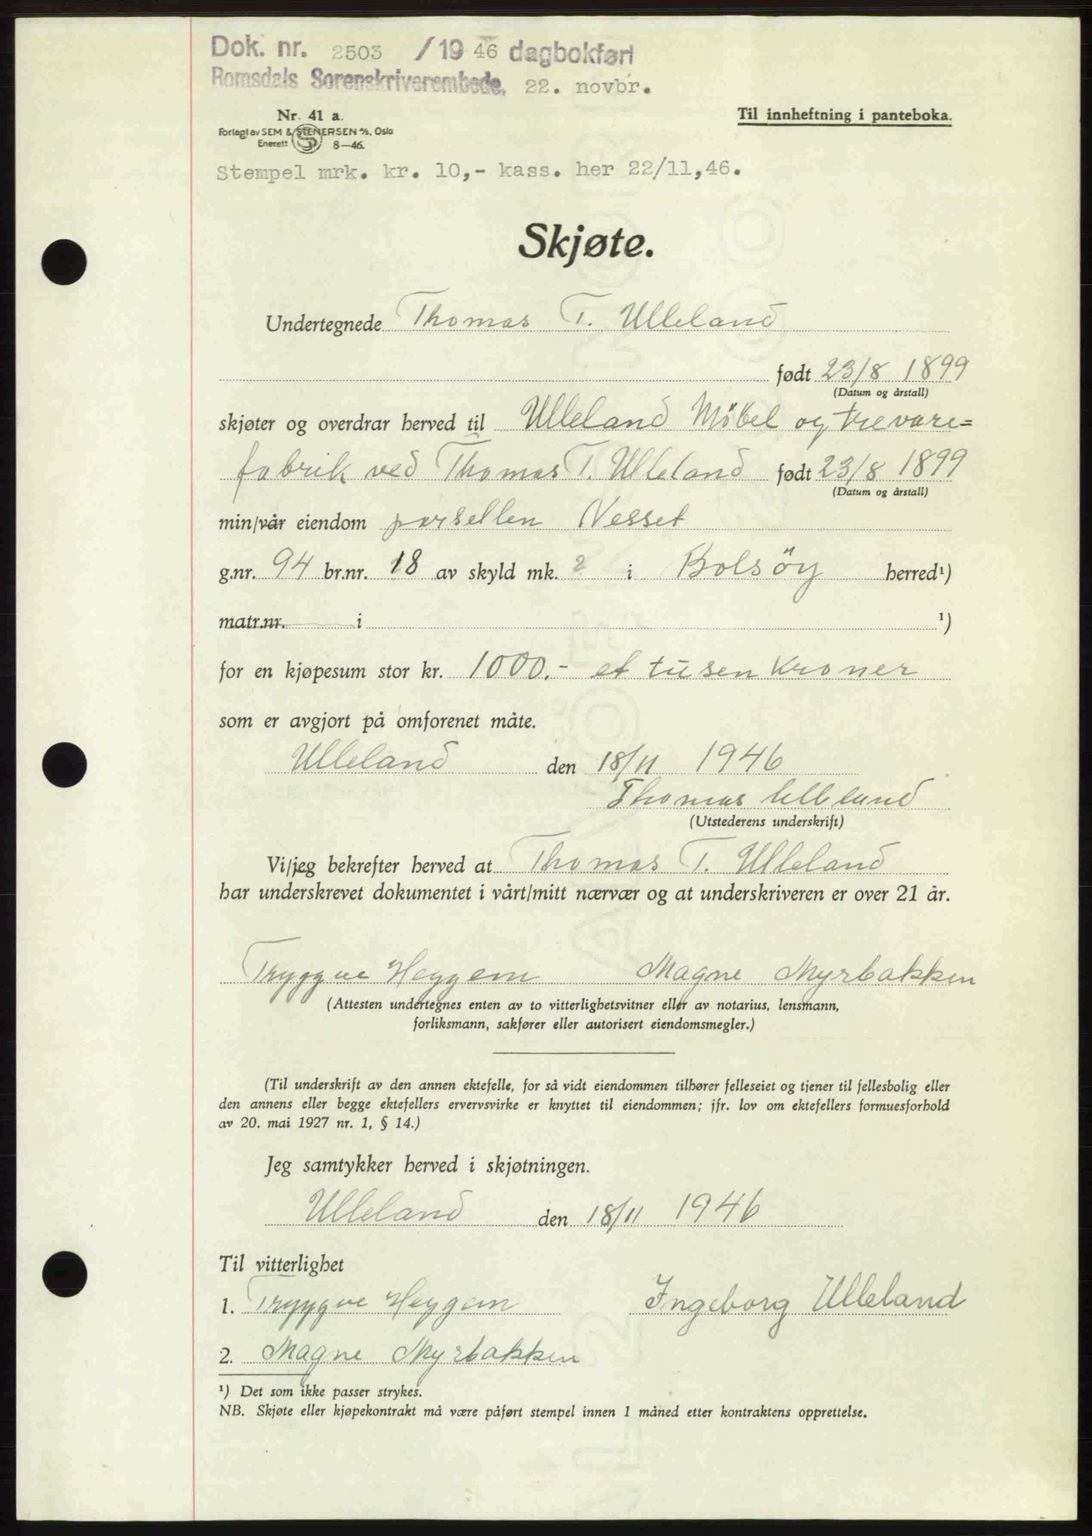 Dok. nr. 2503 /1946 dagbokført
Romsdals Sorenskriverembede, 22. novbr.
Nr. 41 a.
Til innheftning i panteboka.
Forlagt av SEM & STENERSEN A/S, Oslo
Enerett 8—46.
Stempel mrk. kr. 10,- kass. her 22/11,46.
Skjøte.
Undertegnede Thomas T. Ulleland
født 23/8 1899
(Datum og årstall)
skjøter og overdrar herved til Ulleland Möbel og trevare=
fabrik ved Thomas T. Ulleland født 23/8 1899
(Datum og årstall)
min/vår eiendom parsellen Nesset
g.nr. 94 br.nr. 18 av skyld mk. 2 i Bolsöy herred¹)
matr.nr. i ¹)
for en kjøpesum stor kr. 1000.- et tusen kroner
som er avgjort på omforenet måte.
Ulleland den 18/11 1946
Thomas Ulleland
(Utstederens underskrift)
Vi/jeg bekrefter herved at Thomas T. Ulleland
har underskrevet dokumentet i vårt/mitt nærvær og at underskriveren er over 21 år.
Tryggve Heggem Magne Myrbakken
(Attesten undertegnes enten av to vitterlighetsvitner eller av notarius, lensmann,
forliksmann, sakfører eller autorisert eiendomsmegler.)
(Til underskrift av den annen ektefelle, for så vidt eiendommen tilhører felleseiet og tjener til fellesbolig eller
den annens eller begge ektefellers ervervsvirke er knyttet til eiendommen; jfr. lov om ektefellers formuesforhold
av 20. mai 1927 nr. 1, § 14.)
Jeg samtykker herved i skjøtningen.
Ulleland den 18/11 1946
Til vitterlighet
1. Tryggve Heggem Ingeborg Ulleland
2. Magne Myrbakken
¹) Det som ikke passer strykes.
NB. Skjøte eller kjøpekontrakt må være påført stempel innen 1 måned etter kontraktens opprettelse.